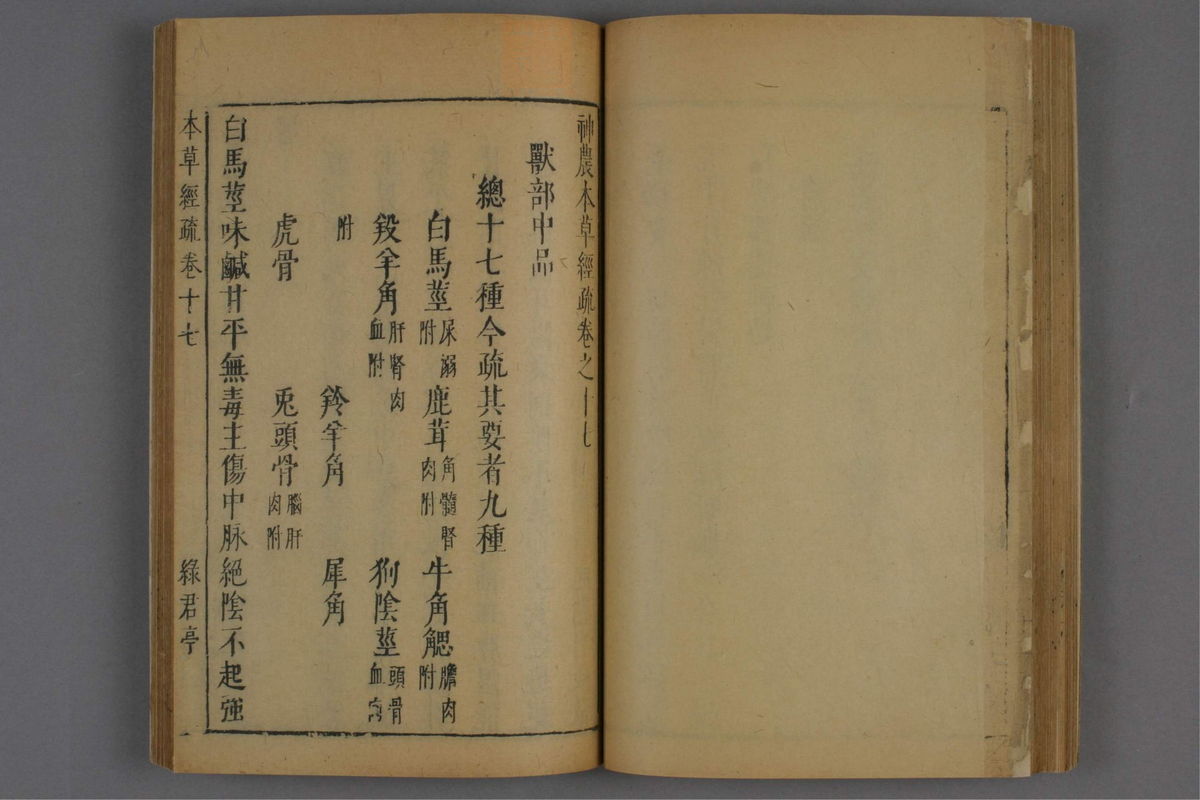 神農本草經疏卷之十七
獸部中品
總十七種今疏其要者九種
白馬莖屎溺附 鹿茸角髓腎肉附 牛角䚡膽肉附
羖羊角肝腎肉血附 狗陰莖頭骨血肉
附 羚羊角 犀角
虎骨 兎頭骨腦肝肉附
白馬莖味鹹甘平無毒主傷中脉絕陰不起強
本草經疏卷十七 綠君亭